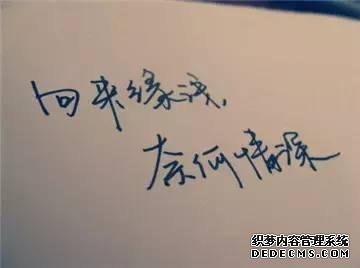 向来缘浅，
奈何情深
织梦内容管理系统
DEDECMS.COM